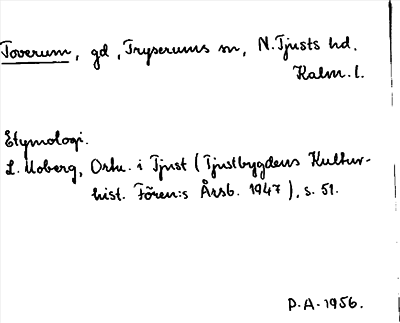 Toverum, gd, Tryserums sn, N. Tjusts hd.
Kalm. l.
Etymologi.
L. Moberg, Ortn. i Tjust (Tjustbygdens Kultur-
hist. Fören:s Årsb. 1947), s. 51.
P.A. 1956.